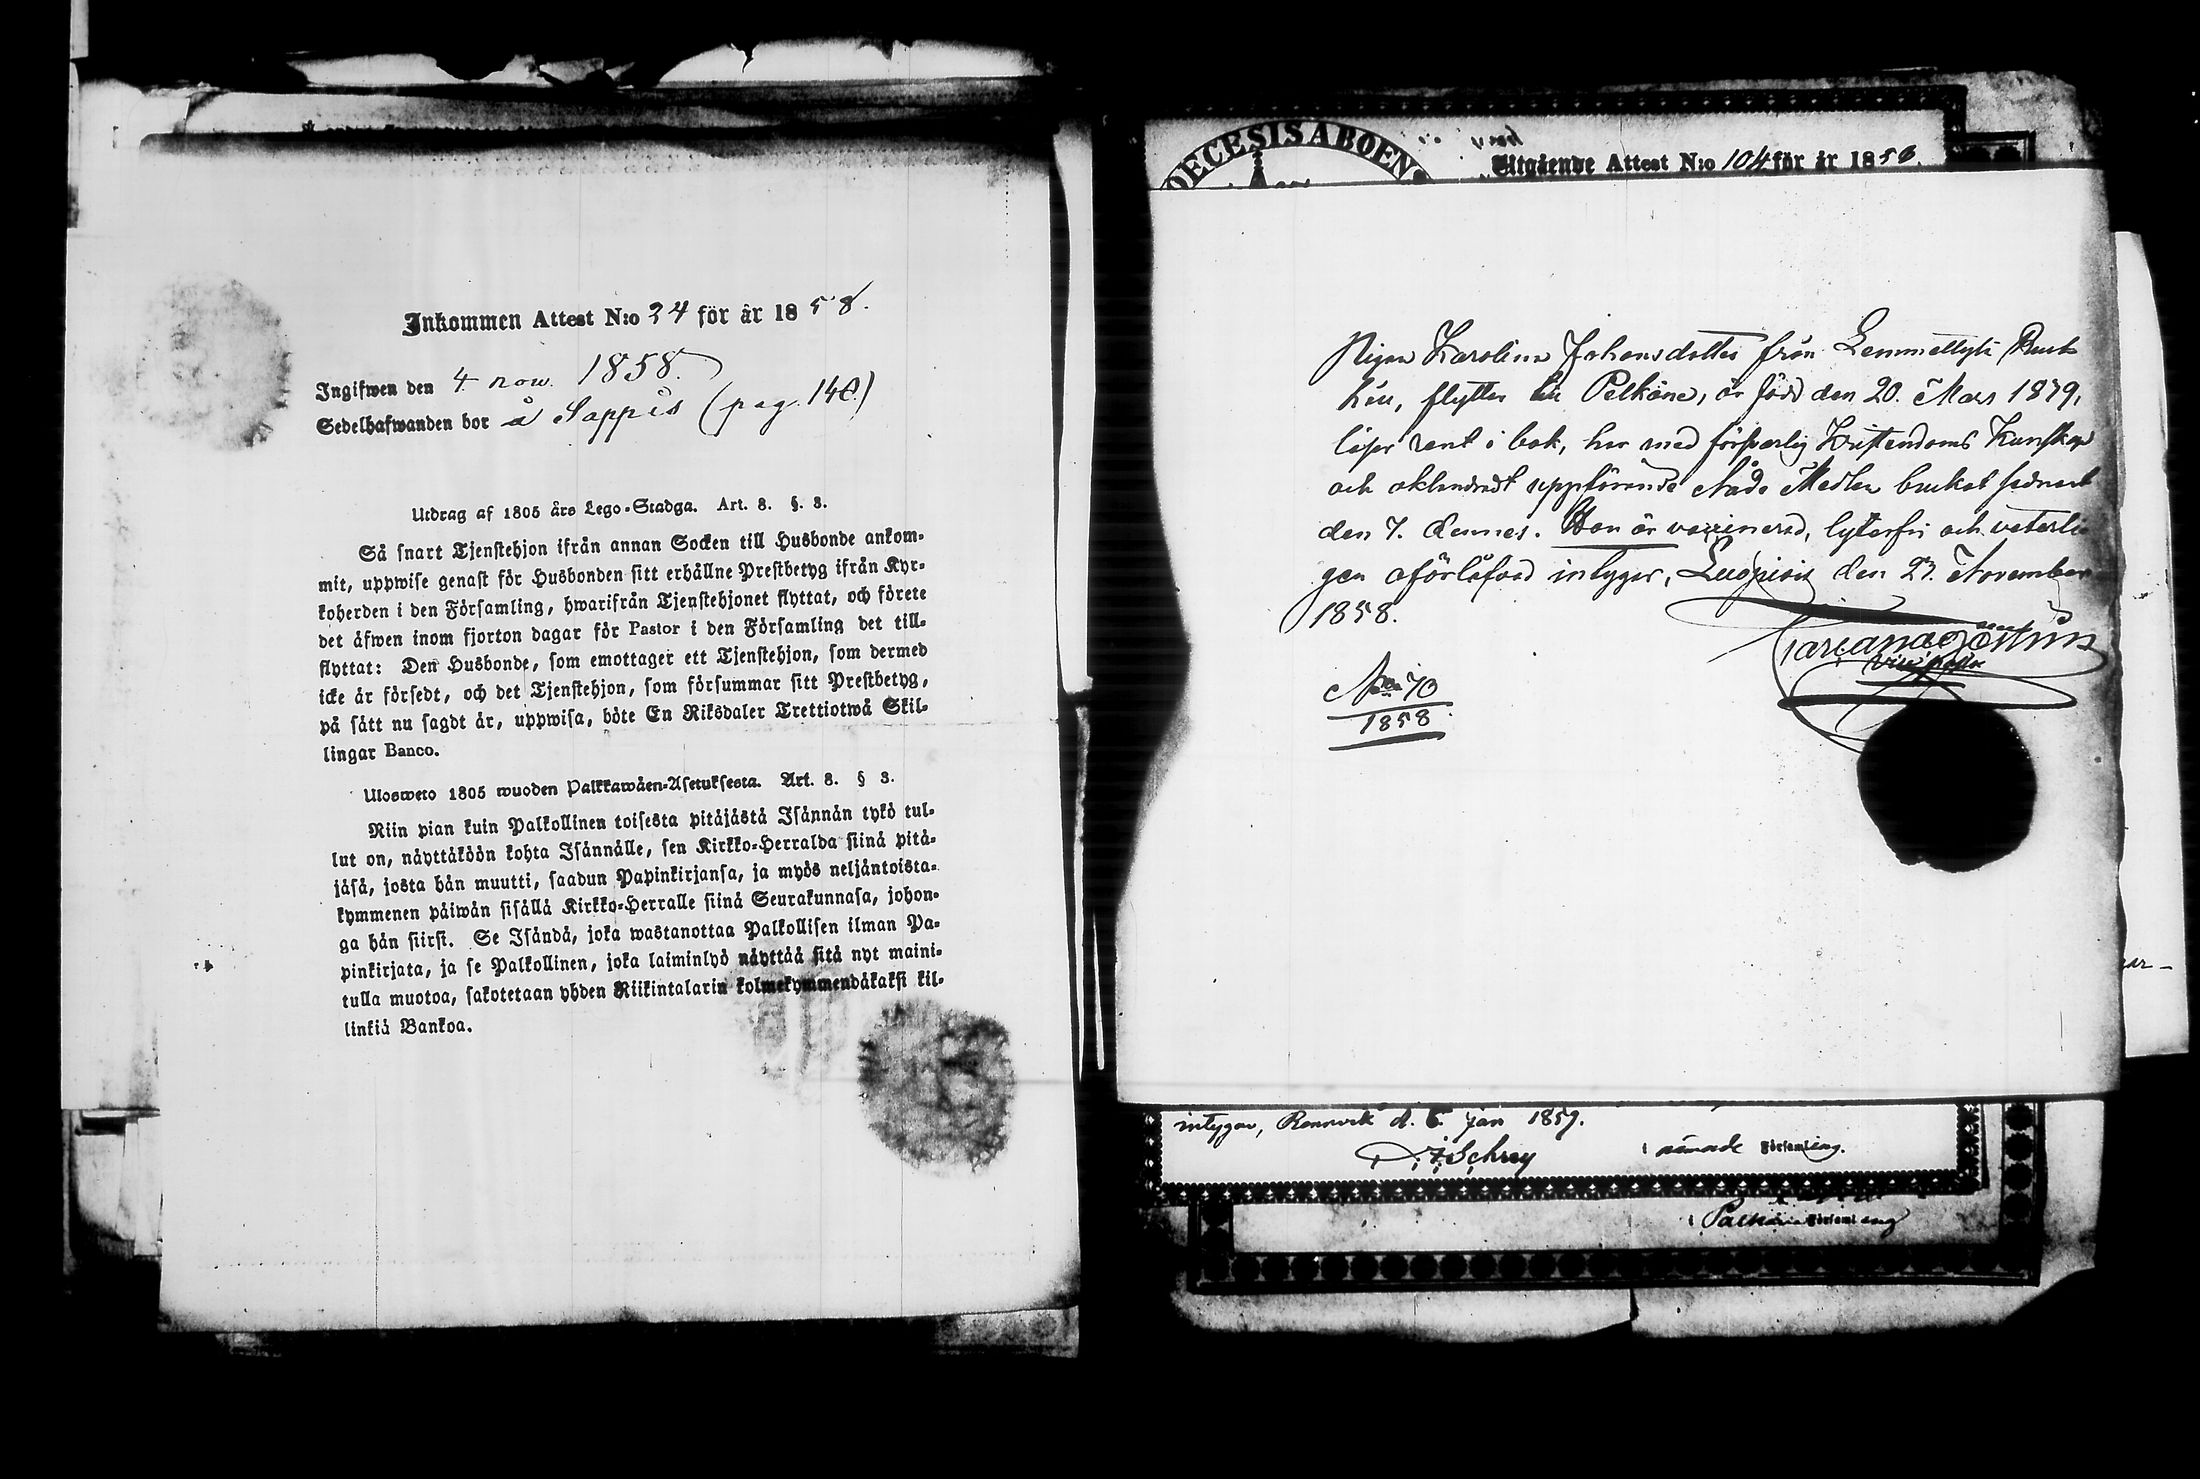 Inkommen Attest N:o 34 för år 1858.
Ingifwen den 4 nov. 1858.
Sedelhafwanden bor å Sappis (pag. 140)
Utdrag af 1805 års Lego-Stadga. Art. 8. §. 3.
Så snart Tjenstehjon ifrån annan Socken till Husbonde ankom-
mit, uppwise genast för Husbonden sitt erhållne Prestbetyg ifrån Kyr-
koherden i den Församling, hwarifrån Tjenstehjonet flyttat, och förete
det äfwen inom fjorton dagar för Pastor i den Församling det till-
flyttat: Den Husbonde, som emottager ett Tjenstehjon, som dermed
icke är försedt, och det Tjenstehjon, som försummar sitt Prestbetyg,
på sätt nu sagdt är, uppwisa, böte En Riksdaler Trettiotwå Skil-
lingar Banco.
Ulosweto 1805 wuoden Palkkawäen-Asetuksesta. Art. 8. § 3.
Niin pian kuin Palkollinen toisesta pitäjästä Isännän tykö tul-
lut on, näyttäköön kohta Isännälle, sen Kirkko-Herralda siinä pitä-
jäsä, josta hän muutti, saadun Papinkirjansa, ja myös neljäntoista-
kymmenen päiwän sisällä Kirkko-Herralle siinä Seurakunnasa, johon-
ga hän siirsi. Se Isändä, joka wastanottaa Palkollisen ilman Pa-
pinkirjata, ja se Palkollinen, joka laiminlyö näyttää sitä nyt maini-
tulla muotoa, sakotetaan yhden Riikintalarin kolmekymmendäkaksi kil-
linkiä Bankoa.
OECESIS ABOEN
Utgående Attest N:o 104 för år 1858.
Pigan Karolina Johansdotter från Lemmettylä Rusk
, flyttar till Pelkäne, är född den 20. Mars 1839,
läser rent i bok, har med försvarlig Kristendoms Kunskap
och oklandradt uppförande Nåde Medlen brukat sednast
den 7. dennes. Hon är vaccinerad, lytesfri och veterli-
gen oförlofvad intygar, Luopiois den 23. November
1858.
No 70
1858.
intygar, d. 6 Jan 1859.
Schrey
i Församling.
i Pelkäne Församling